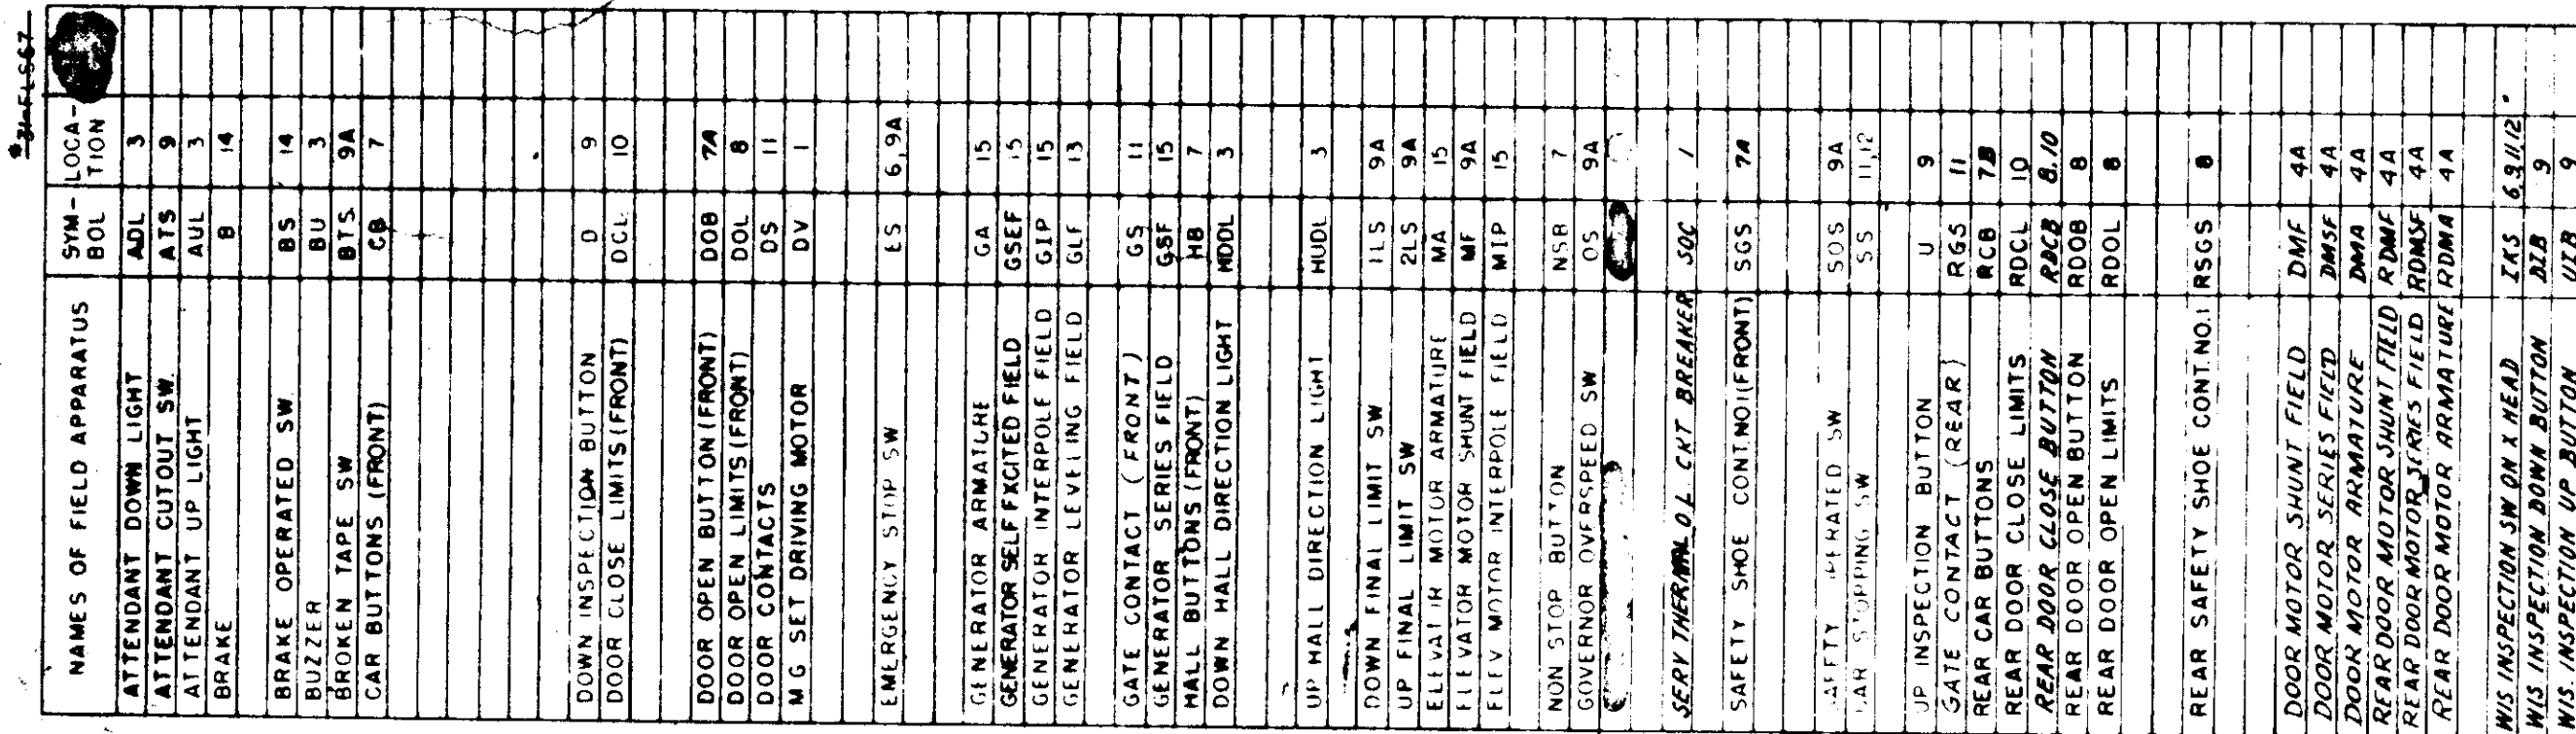 NAMES OF FIELD APPARATUS SYM-BOL LOCA-TION
ATTENDANT DOWN LIGHT ADL 3
ATTENDANT CUTOUT SW. ATS 9
ATTENDANT UP LIGHT AUL 3
BRAKE B 14
BRAKE OPERATED SW. BS 14
BUZZER BU 3
BROKEN TAPE SW BTS. 9A
CAR BUTTONS (FRONT) CB 7
DOWN INSPECTION BUTTON D 9
DOOR CLOSE LIMITS (FRONT) DCL 10
DOOR OPEN BUTTON (FRONT) DOB 7A
DOOR OPEN LIMITS (FRONT) DOL 8
DOOR CONTACTS DS 11
M G SET DRIVING MOTOR DV 1
EMERGENCY STOP SW ES 6,9A
GENERATOR ARMATURE GA 15
GENERATOR SELF EXCITED FIELD GSEF 15
GENERATOR INTERPOLE FIELD GIP 15
GENERATOR LEVELING FIELD GLF 13
GATE CONTACT (FRONT) GS 11
GENERATOR SERIES FIELD GSF 15
HALL BUTTONS (FRONT) HB 7
DOWN HALL DIRECTION LIGHT HDDL 3
UP HALL DIRECTION LIGHT HUDL 3
DOWN FINAL LIMIT SW 1LS 9A
UP FINAL LIMIT SW 2LS 9A
ELEVATOR MOTOR ARMATURE MA 15
ELEVATOR MOTOR SHUNT FIELD MF 9A
ELEV MOTOR INTERPOLE FIELD MIP 15
NON STOP BUTTON NSB 7
GOVERNOR OVERSPEED SW OS 9A
SERV THERMAL O.L. CKT BREAKER SOC 1
SAFETY SHOE CONT. NO1 (FRONT) SGS 7A
SAFETY OPERATED SW SOS 9A
CAR STOPPING SW SS 11,12
UP INSPECTION BUTTON U 9
GATE CONTACT (REAR) RGS 11
REAR CAR BUTTONS RCB 7B
REAR DOOR CLOSE LIMITS RDCL 10
REAR DOOR CLOSE BUTTON RDCB 8.10
REAR DOOR OPEN BUTTON RDOB 8
REAR DOOR OPEN LIMITS RDOL 8
REAR SAFETY SHOE CONT. NO.1 RSGS 8
DOOR MOTOR SHUNT FIELD DMF 4A
DOOR MOTOR SERIES FIELD DMSF 4A
DOOR MOTOR ARMATURE DMA 4A
REAR DOOR MOTOR SHUNT FIELD RDMF 4A
REAR DOOR MOTOR SERIES FIELD RDMSF 4A
REAR DOOR MOTOR ARMATURE RDMA 4A
WIS INSPECTION SW ON X HEAD IKS 6,9,11,12
WIS INSPECTION DOWN BUTTON DIB 9
WIS. INSPECTION UP BUTTON UIB 9